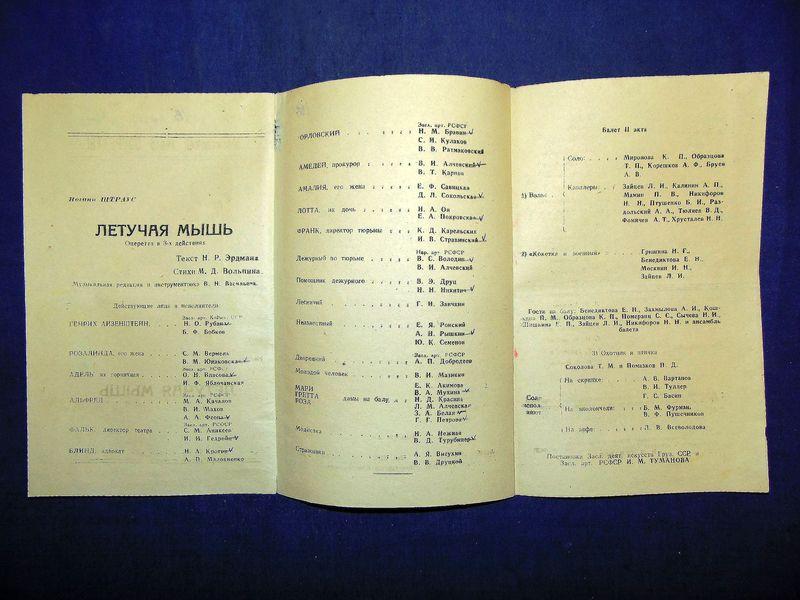 Иоганн ШТРАУС
ЛЕТУЧАЯ МЫШЬ
Оперетта в 3-х действиях
Текст Н. Р. Эрдмана
Стихи М. Д. Вольпина
Музыкальная редакция и инструментовка
Действующие лица и исполнители:
ГЕНРИХ АЙЗЕНШТЕЙН
Н. О. Рубан
Б. Ф. Бобков
РОЗАЛИНДА, его жена
С. М. Вермель
В. М.
АДЕЛЬ их горничная
О. Н. Власова
И. Ф. Яблочанская
АЛЬФРЕД
М. А. Качалов
В. И. Махов
А. А. Феона
Засл. арт. РСФСР
ФАЛЬК, директор театра
С. М. Аникеев
И. И.
БЛИНД, адвокат
Н. А.
А. П.
Засл. арт. РСФСР
ОРЛОВСКИЙ
Н. М. Бравин
С. И. Кулаков
В. В. Ратмаковский
АМЕДЕЙ, прокурор
В. И. Алчевский
В. Т. Карпов
АМАЛИЯ, его жена
Е. Ф. Савицкая
Д. Л. Сокольская
ЛОТТА, их дочь
Н. А. Он
Е. А. Покровская
ФРАНК, директор тюрьмы
К. Д. Карельских
И. В. Стравинский
Нар. арт. РСФСР
Дежурный по тюрьме
В. С. Володин
В. И. Алчевский
Помощник дежурного
В. Э. Друц
Н. Н. Никитич
Лесничий
Г. Н. Заичкин
Неизвестный
Е. Я. Ронский
А. Н. Рышкин
Ю. К. Семенов
Засл. арт. РСФСР
Дворецкий
А. П. Добродеев
Молодой человек
В. И. Мазинкин
МАРИ
ГРЕТТА
РОЗА
дамы на балу
Е. К. Акимова
В. А. Мухина
Н. Д. Красина
Л. М. Алчевская
З. А. Белая
Г. Г. Петрова
Модистка
Н. А. Нежная
В. Д. Турубинер
Стражники
А. Я. Висухин
В. В. Друцкой
Балет II акта
1) Вальс
Соло:
Миронова К. П., Образцова
Т. П., Корешков А. Ф., Бруев
А. В.
Кавалеры:
Зайцев Л. И., Калинин А. П.,
Мамин П. В., Никифоров
Н. Н., Птушенко Б. И., Раз-
дольский А. А., Тюляев В. Д.,
Фомичев А. Т., Хрусталев Н. Н.
2) «Кокетка и военный»
Гришина Н. Г.,
Бенедиктова Е. Н.,
Москвин И. Н.,
Зайцев Л. И.
Гости на балу: Бенедиктова Е. Н., Захмылова А. И., Кош-
П. М., Образцова К. П., Померанц С. С., Сычева Н. И.,
Е. П., Зайцев Л. И., Никифоров Н. Н. и ансамбль
балета
3) Охотник и птичка
Соколова Т. М. и Помазков Н. Д.
Соло
испол-
няют
На скрипке:
А. В. Вартанов
В. И. Туллер
Г. С. Басин
На виолончели:
Б. М. Фурман,
В. Ф. Пушечников
На арфе:
Л. В. Всеволодова
Постановка Засл. деят. искусств Груз. ССР и
Засл. арт. РСФСР И. М. ТУМАНОВА